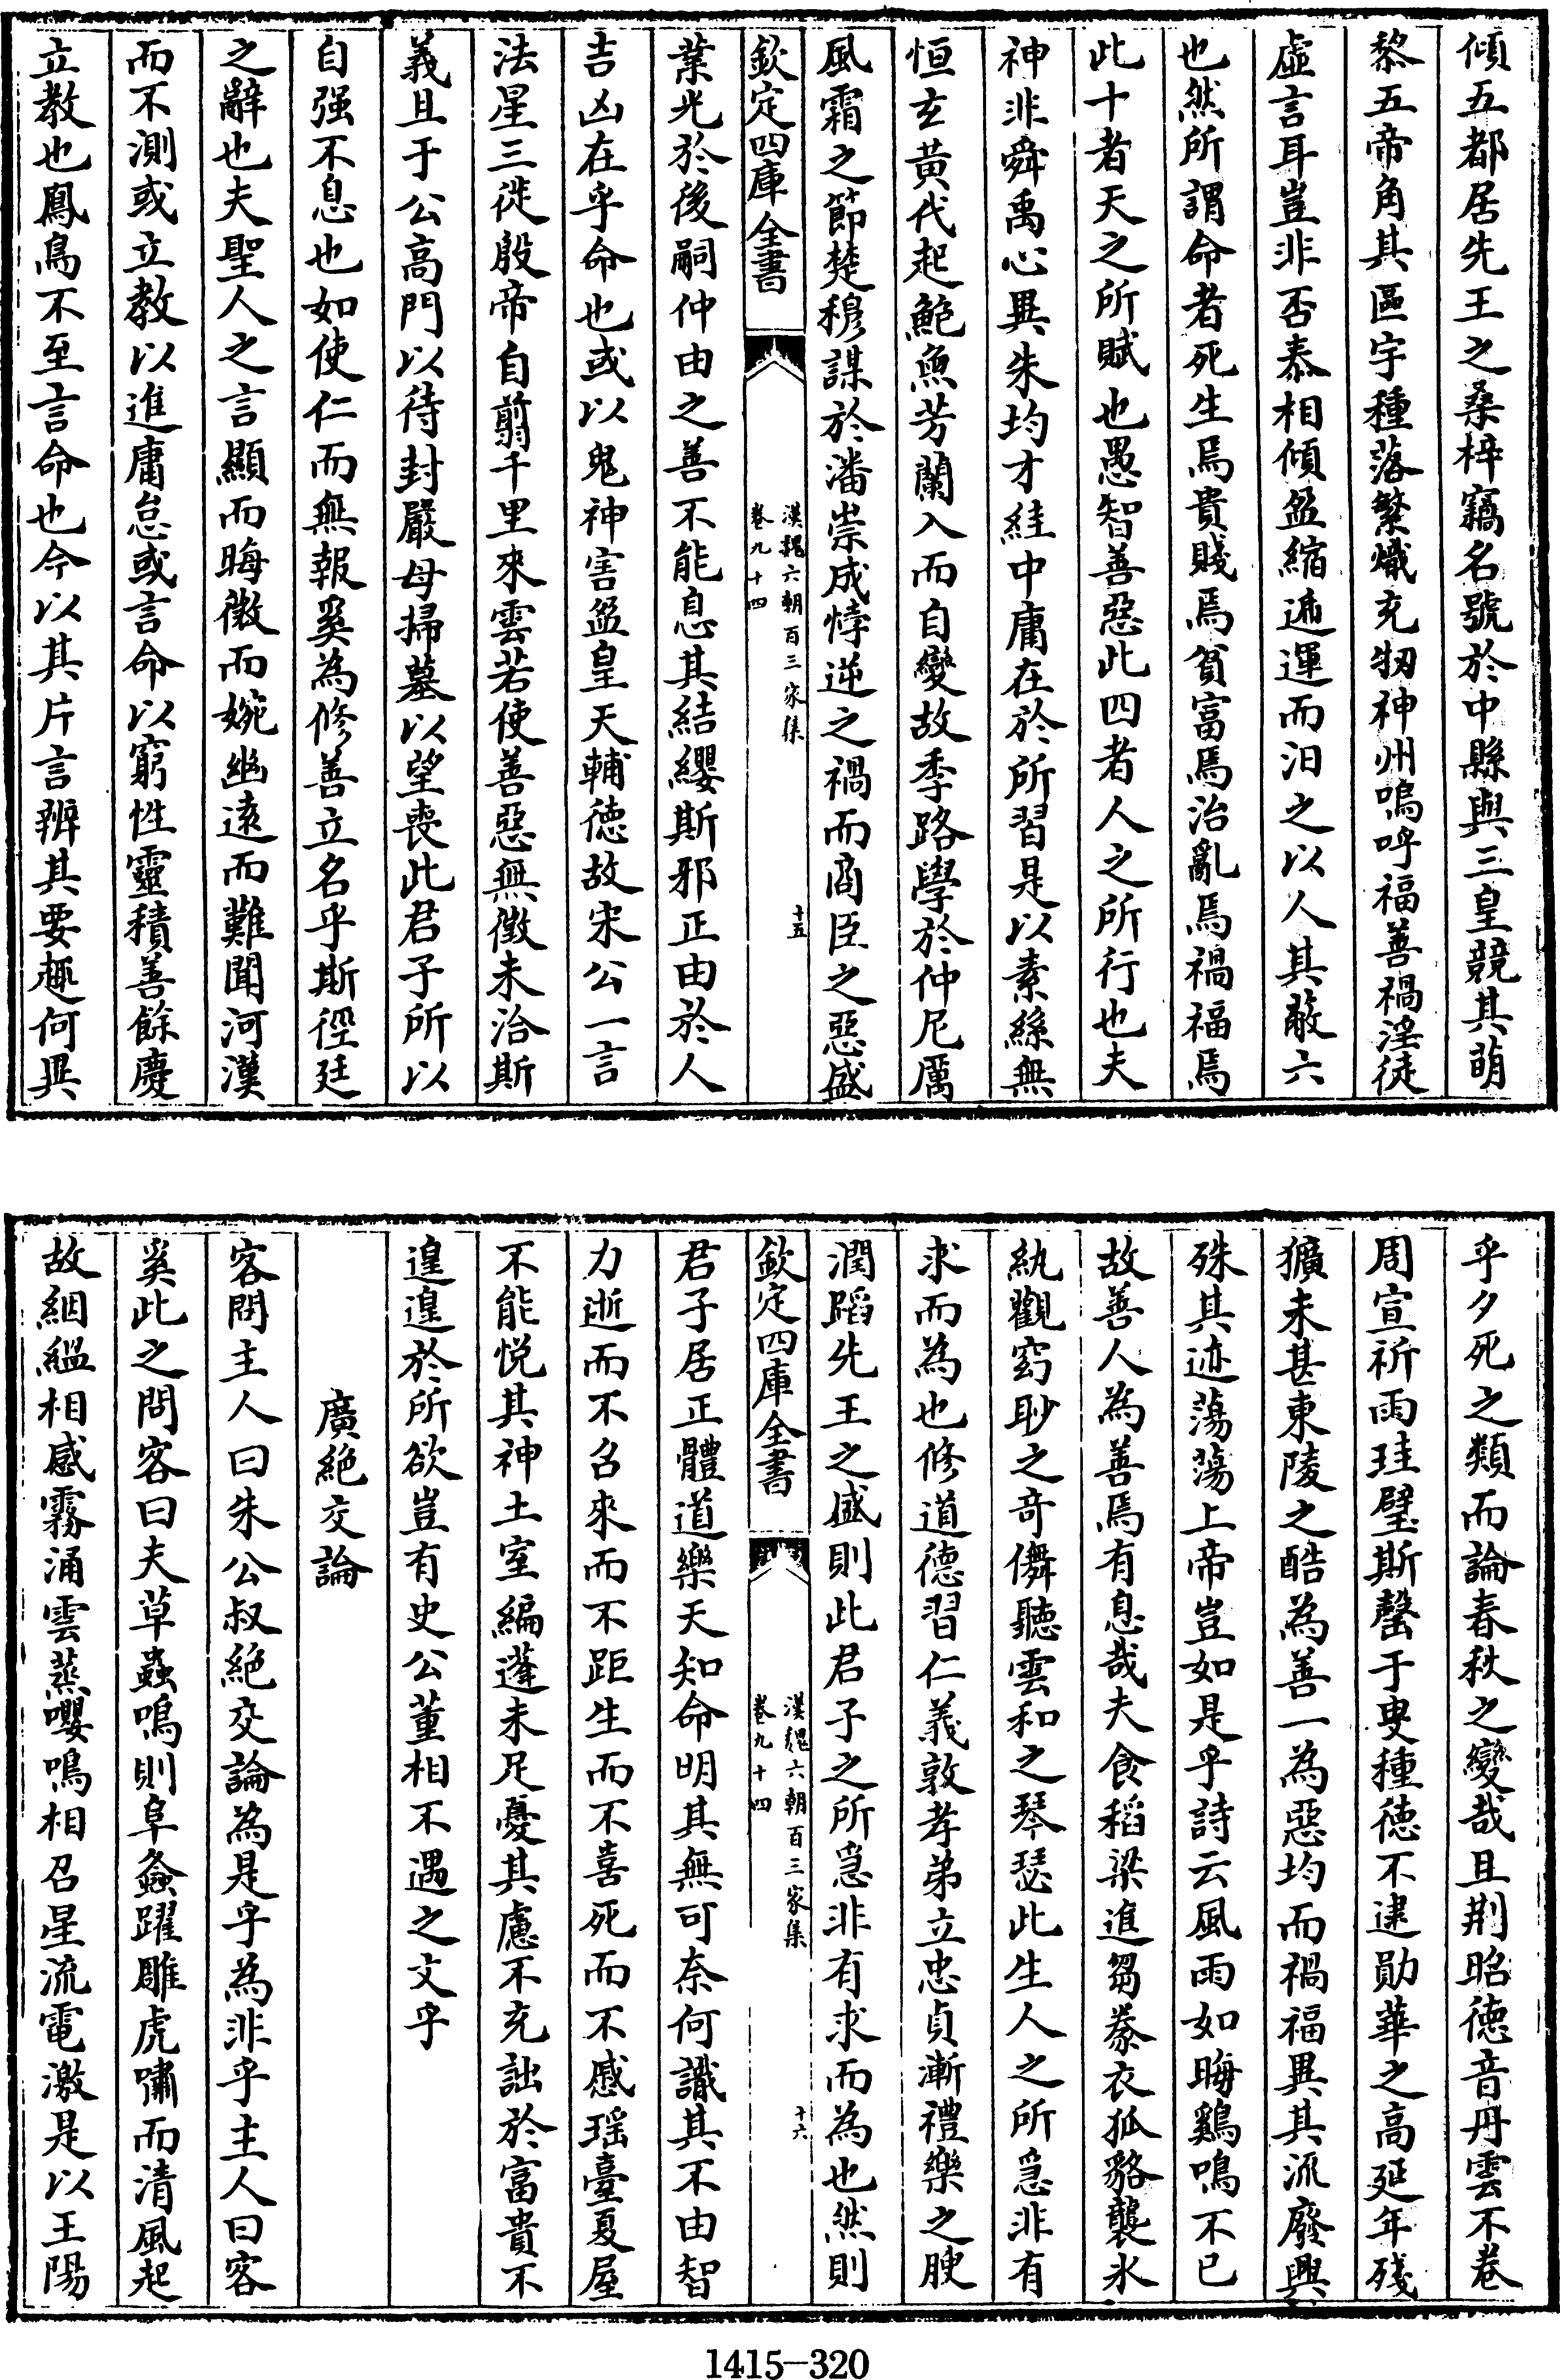 傾五都居先王之桑梓竊名號於中縣與三皇競其萌
黎五帝角其區宇種落繁熾充牣神州嗚呼福善禍淫徒
虛言耳豈非否泰相傾盈縮遞運而汩之以人其蔽六
也然所謂命者死生焉貴賤焉貧富焉治亂焉禍福焉
此十者天之所賦也愚智善惡此四者人之所行也夫
神非舜禹心異朱均才絓中庸在於所習是以素絲無
恒玄黃代起鮑魚芳蘭入而自變故季路學於仲尼厲
風霜之節楚穆謀於潘崇成悖逆之禍而商臣之惡盛
欽定四庫全書
漢魏六朝百三家集
卷九十四
十五
業光於後嗣仲由之善不能息其結纓斯邪正由於人
吉凶在乎命也或以鬼神害盈皇天輔德故宋公一言
法星三徙殷帝自翦千里來雲若使善惡無徵未洽斯
義且于公高門以待封嚴母掃墓以望喪此君子所以
自强不息也如使仁而無報奚為修善立名乎斯徑廷
之辭也夫聖人之言顯而晦微而婉幽遠而難聞河漢
而不測或立教以進庸怠或言命以窮性靈積善餘慶
立教也鳳鳥不至言命也今以其片言辨其要趣何異
乎夕死之類而論春秋之變哉且荆昭德音丹雲不卷
周宣祈雨珪璧斯罄于叟種德不逮勛華之高延年殘
獷未甚東陵之酷為善一為惡均而禍福異其流廢興
殊其迹蕩蕩上帝豈如是乎詩云風雨如晦鷄鳴不已
故善人為善焉有息哉夫食稻粱進芻豢衣狐貉襲氷
紈觀窈眇之奇儛聽雲和之琴瑟此生人之所急非有
求而為也修道德習仁義敦孝弟立忠貞漸禮樂之腴
潤蹈先王之盛則此君子之所急非有求而為也然則
欽定四庫全書
漢魏六朝百三家集
卷九十四
十六
君子居正體道樂天知命明其無可奈何識其不由智
力逝而不召來而不距生而不喜死而不慼瑶臺夏屋
不能悦其神土室編蓬未足憂其慮不充詘於富貴不
遑遑於所欲豈有史公董相不遇之文乎
廣絶交論
客問主人曰朱公叔絶交論為是乎為非乎主人曰客
奚此之問客曰夫草蟲鳴則阜螽躍雕虎嘯而清風起
故絪緼相感霧涌雲蒸嚶鳴相召星流電激是以王陽
1415-320